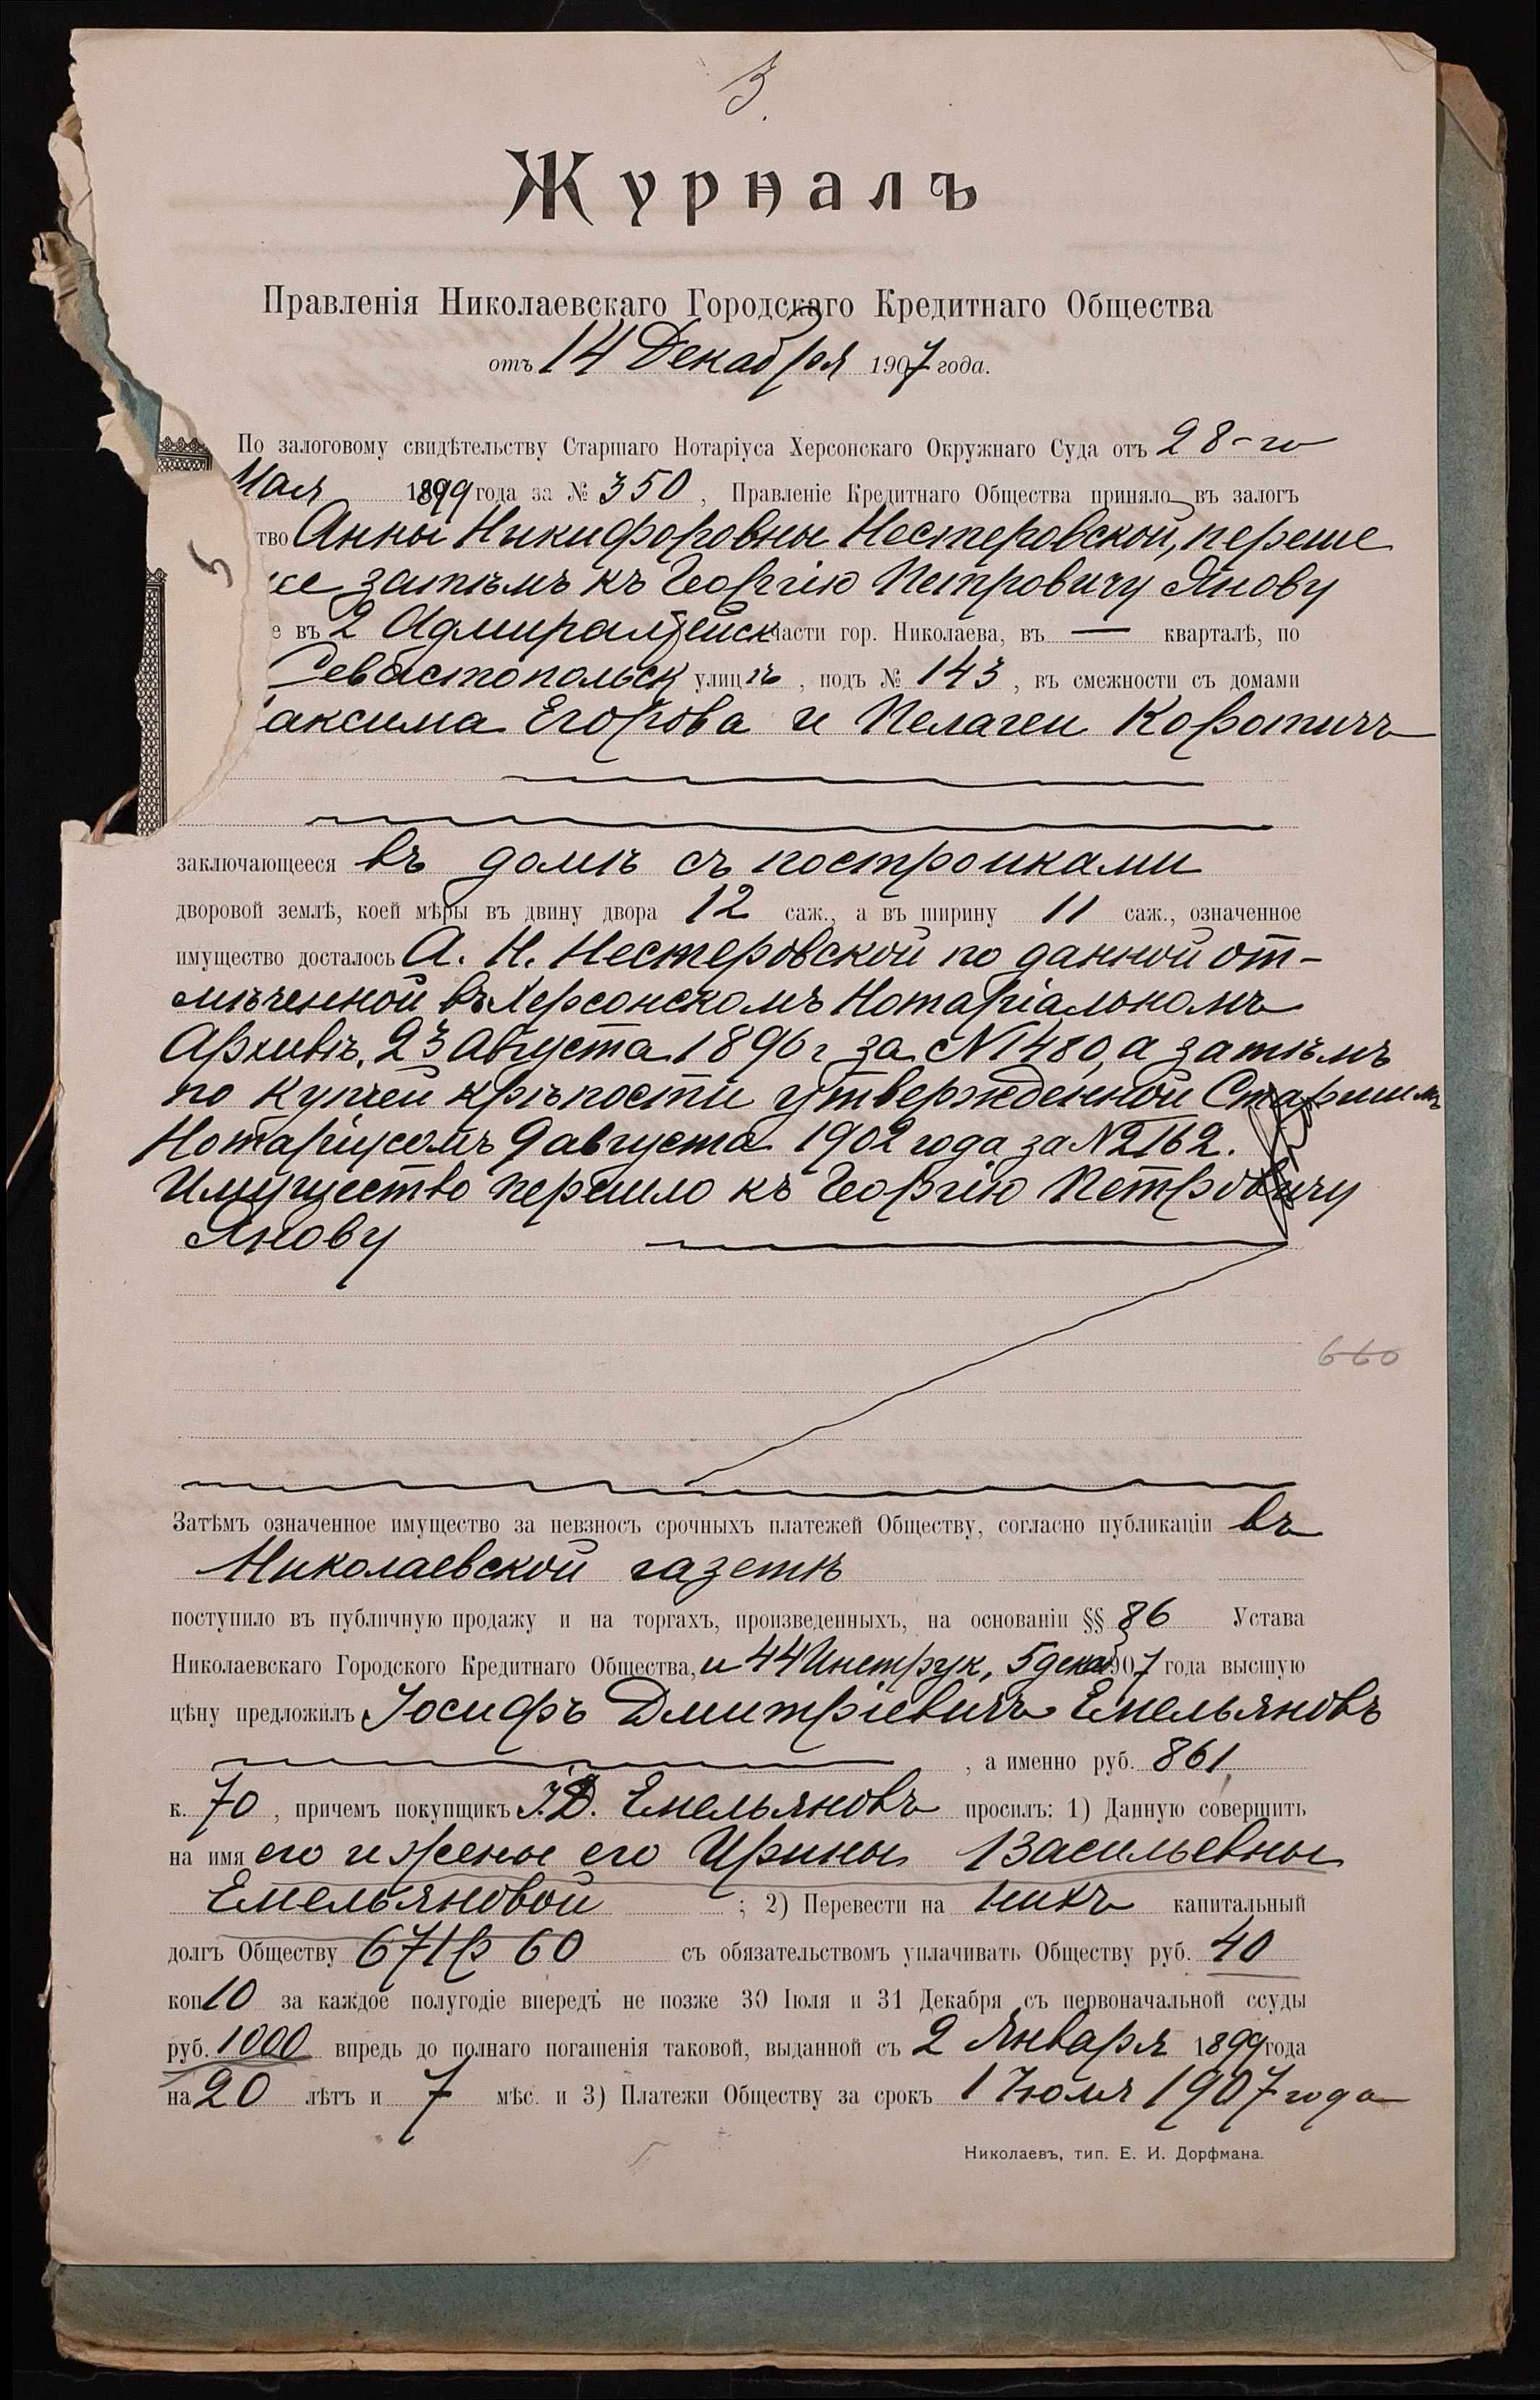 3.
Журналъ
Правленія Николаевскаго Городскаго Кредитнаго Общества
отъ 14 Декабря 1907 года.
По залоговому свидѣтельству Старшаго Нотаріуса Херсонскаго Окружнаго Суда отъ 28-го
Мая 1899 года за № 350, Правленіе Кредитнаго Общества приняло въ залогъ
тво Анны Никифоровны Нестеровской, переше
же затѣмъ къ Георгію Петровичу Янову
е въ 2 Адмиралтейск части гор. Николаева, въ — кварталѣ, по
Севастопольск улицѣ, подъ № 143, въ смежности съ домами
аксима Егорова и Пелагеи Коротичъ
заключающееся въ домѣ съ постройками
дворовой землѣ, коей мѣры въ двину двора 12 саж., а въ ширину 11 саж., означенное
имущество досталось А. Н. Нестеровской по данной от-
мѣченной въ Херсонскомъ Нотаріальномъ
Архивѣ, 23 Августа 1896 г за №1480, а затѣмъ
по купчей крѣпости утвержденной Старшимъ
Нотаріусомъ 9 августа 1902 года за №2162.
Имущество перешло къ Георгію Петровичу
Янову
660
Затѣмъ означенное имущество за невзносъ срочныхъ платежей Обществу, согласно публикаціи въ
Николаевской газетѣ
поступило въ публичную продажу и на торгахъ, произведенныхъ, на основаніи §§ 86 Устава
Николаевскаго Городского Кредитнаго Общества, и 44 Инструк, 5 дека 1907 года высшую
цѣну предложилъ Іосифъ Дмитріевичъ Емельяновъ
, а именно руб. 861,
к. 70, причемъ покупщикъ І. Д. Емельяновъ просилъ: 1) Данную совершить
на имя его и жены его Ирины Васильевны
Емельяновой ; 2) Перевести на нихъ капитальный
долгъ Обществу 671 р 60 съ обязательствомъ уплачивать Обществу руб. 40
коп 10 за каждое полугодіе впередъ не позже 30 Іюля и 31 Декабря съ первоначальной ссуды
руб. 1000 впредь до полнаго погашенія таковой, выданной съ 2 Января 1899 года
на 20 лѣтъ и 7 мѣс. и 3) Платежи Обществу за срокъ 1 Іюля 1907 года
Николаевъ, тип. Е. И. Дорфмана.